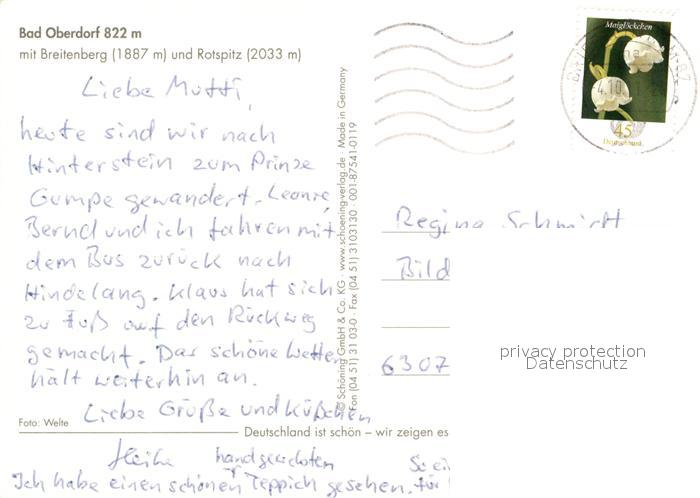 Bad Oberdorf 822 m
mit Breitenberg (1887 m) und Rotspitz (2033 m)
Liebe Mutti,
heute sind wir nach
Hinterstein zum Prinze
Gumpe gewandert. Leonie,
Bernd und ich fahren mit
dem Bus zurück nach
Hindelang. Klaus hat sich
zu Fuß auf den Rückweg
gemacht. Das schöne Wetter
hält weiterhin an.
Liebe Grüße und Küßchen
Heike
handgewebten
Ich habe einen schönen Teppich gesehen. Für
Foto: Welte
Deutschland ist schön – wir zeigen es
© Schöning GmbH & Co. KG · www.schoening-verlag.de · Made in Germany
Fon (04 51) 31 03-0 · Fax (04 51) 3103130 · 001-87541-0119
Maiglöckchen
45
Deutschland
4.10
Regina Schmidt
Bild
6307
privacy protection
Datenschutz